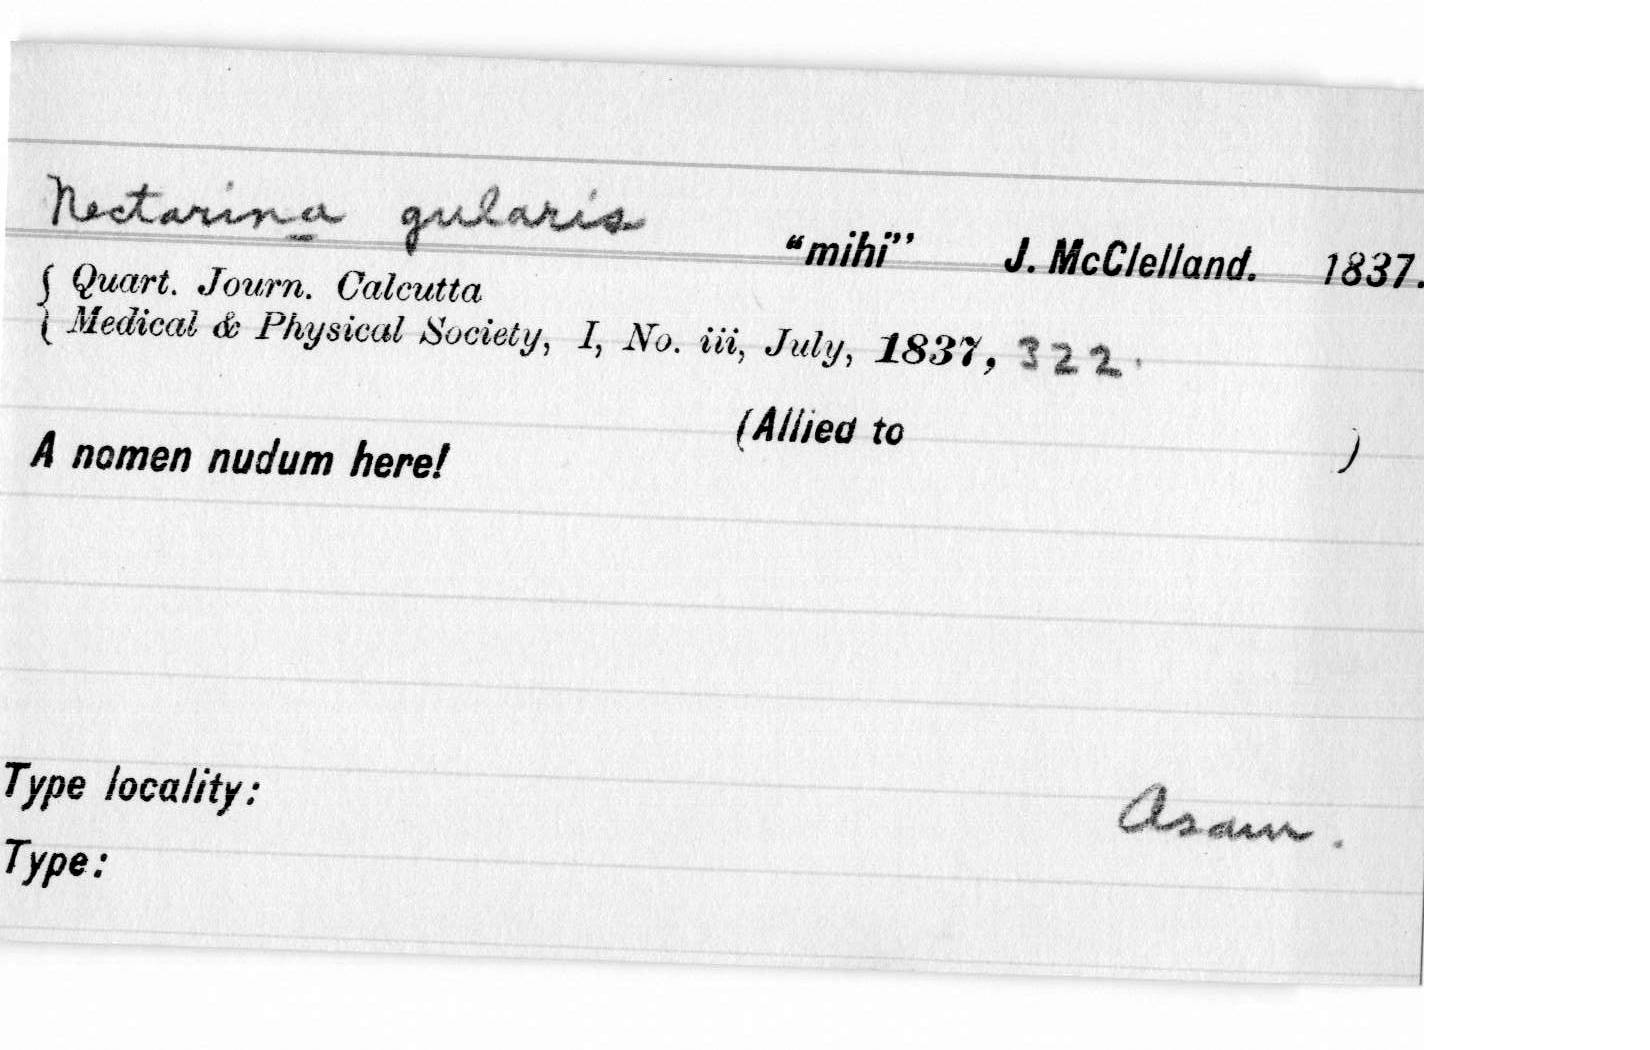 Nectarina gularis "mihi" J. McClelland. 1837.
{ Quart. Journ. Calcutta
{ Medical & Physical Society, I, No. iii, July, 1837, 322.
(Allied to )
A nomen nudum here!
Type locality: Asam.
Type: